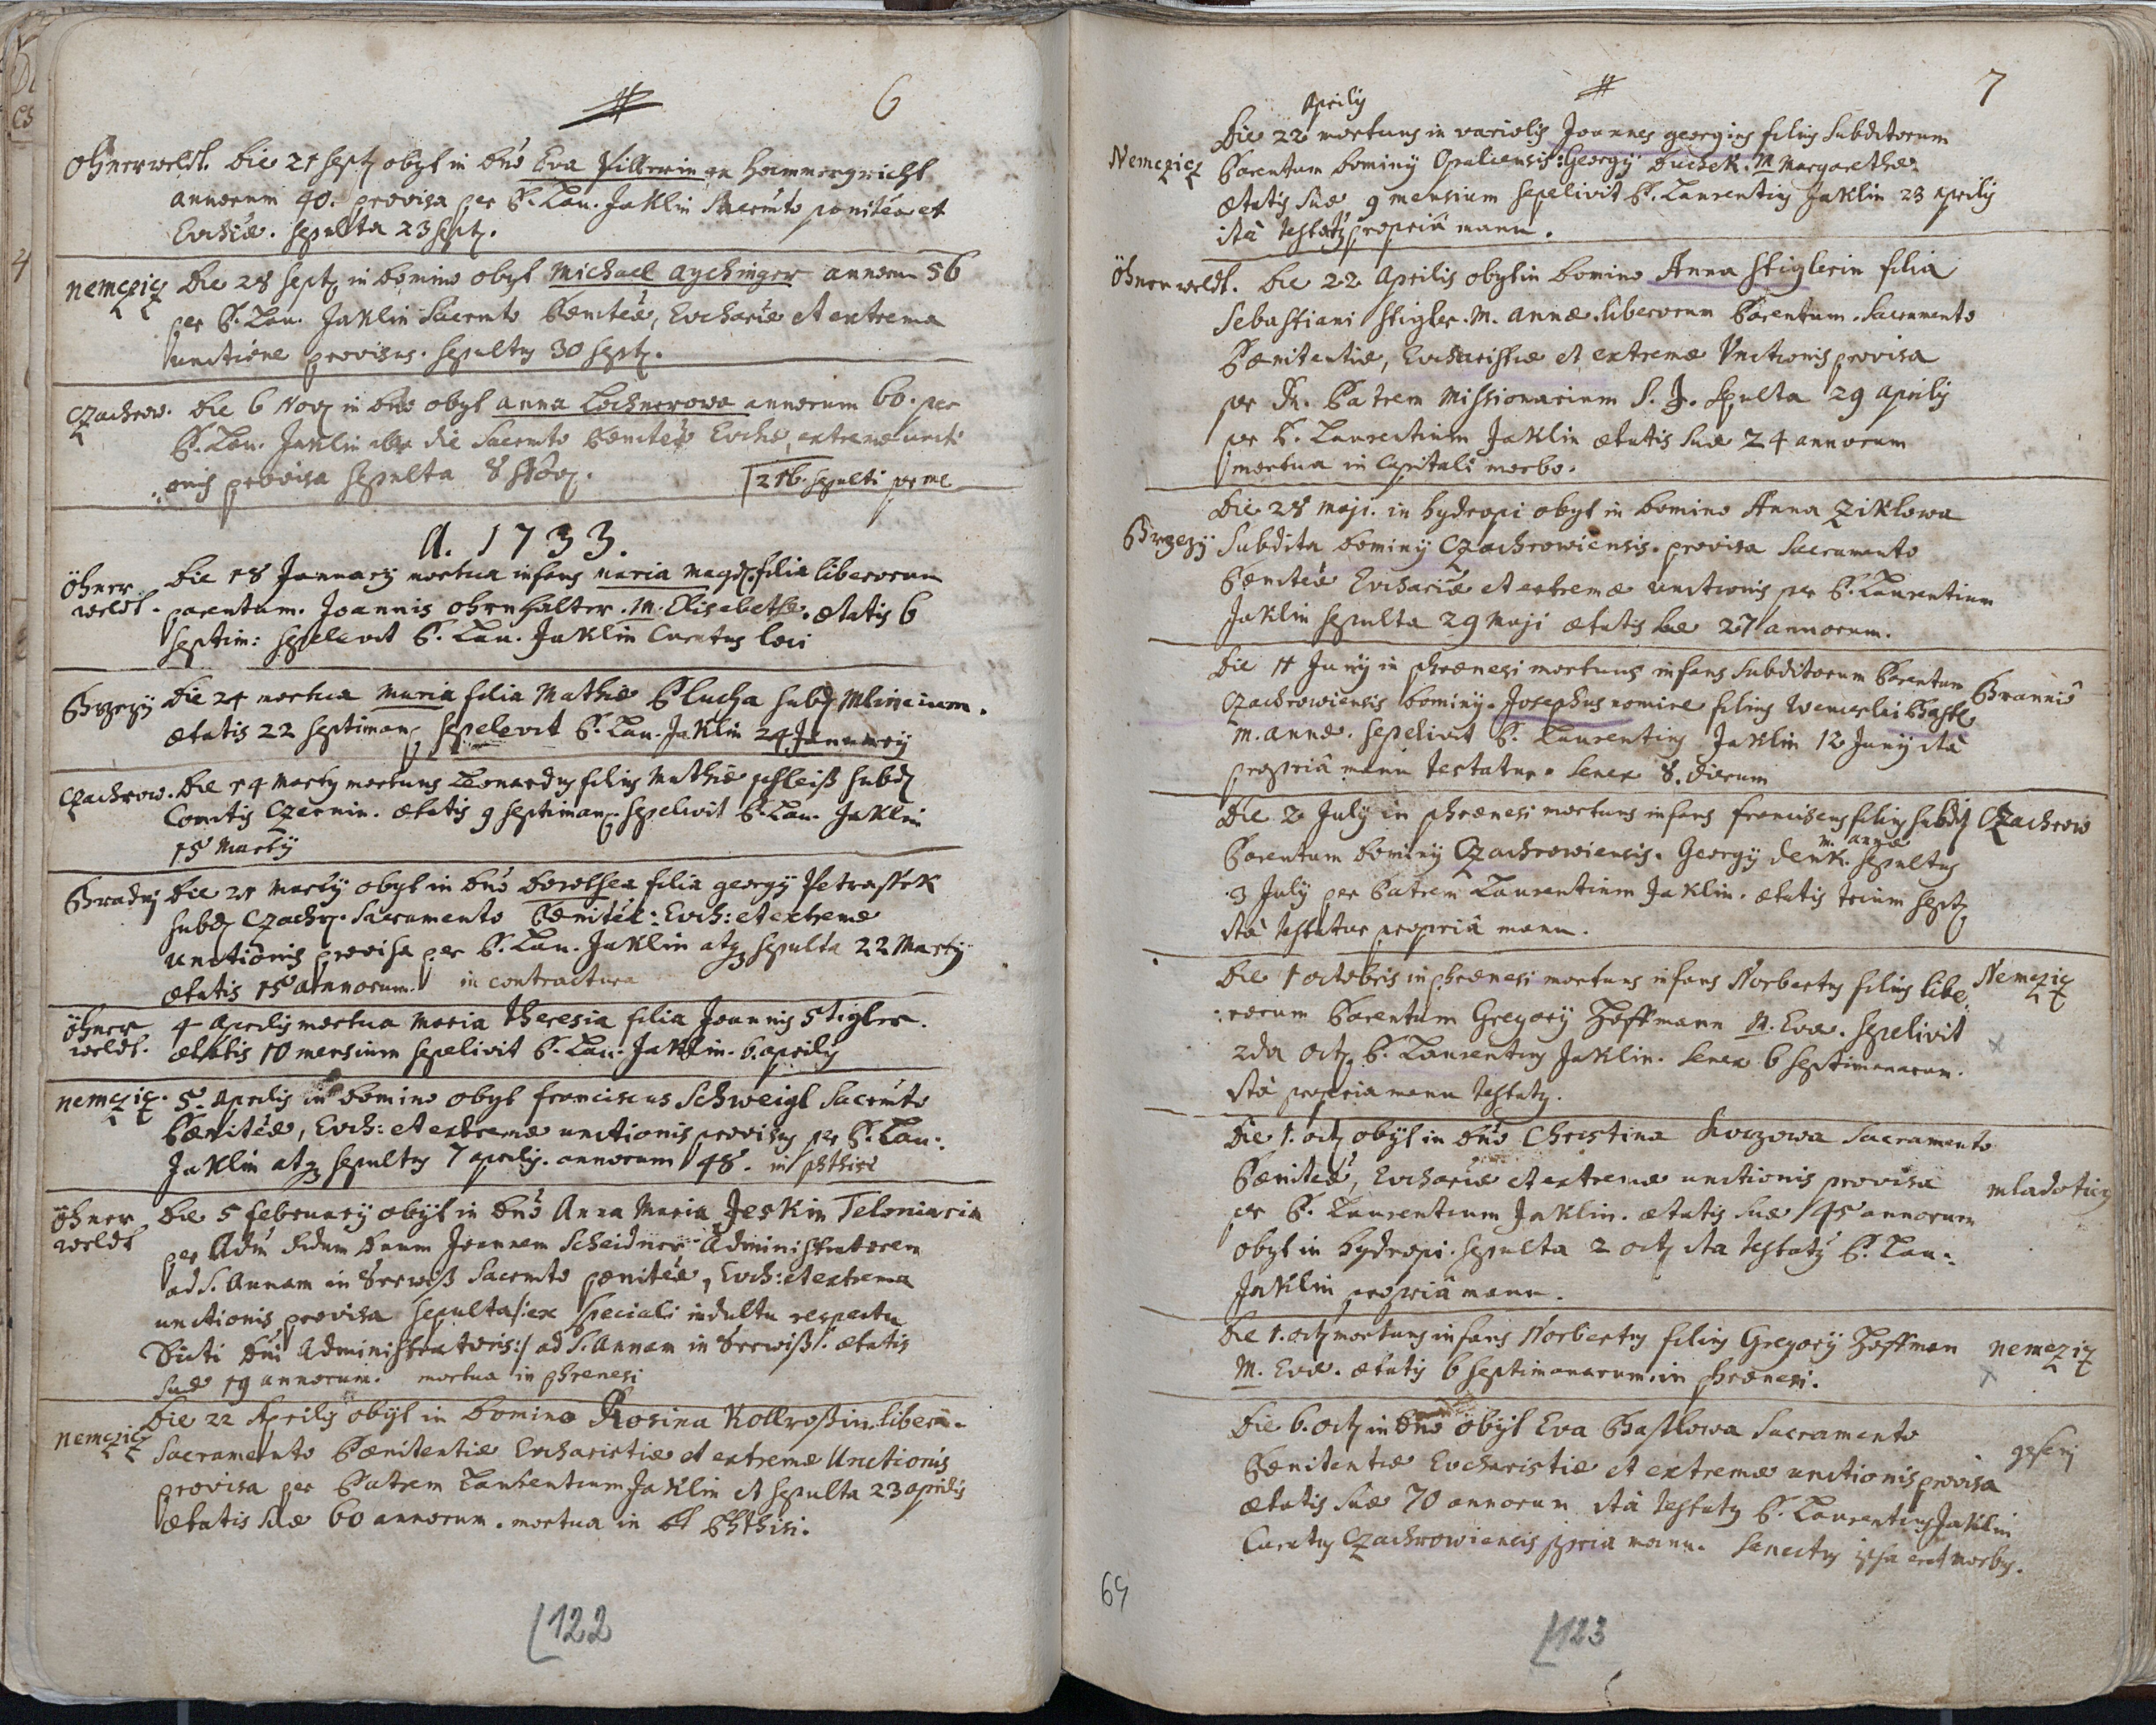 6
Öhnerweldt. Die 21 Sept obyt in Dno Eva Pillerin ex Hammergricht
annorum 40. provisa per P. Lau. Jaklin Sacrmto poeniteae et
Euchiae. sepulta 23 Sept.
Nemeziz Die 28 Sept in Domino obyt Michael Aychinger annorum 56
per P. Lau. Jaklin Sacrmto Poeniteae, Euchariae et extrema
unctione provisus. sepultus 30 Sept.
Czachrow. Die 6 Nov in Dno obyt Anna Lochnerowa annorum 60. per
P. Lau. Jaklin die Sacrmto Poeniteae Euchae, extrema uncti
onis provisa sepulta 8 Nov.
216. sepulti per me
A. 1733.
Öhner
weldt. Die 18 January mortua infans Maria Magd. filia liberorum
parentum. Joannis Ohrnhalter. M. Elisabethae. aetatis 6
septim: sepelivit P. Lau. Jaklin Curatus loci
Brzezy Die 24 mortua Maria filia Mathiae Plucha subd Mlinicium.
aetatis 22 septiman sepelevit P. Lau. Jaklin 24 January
Czachrow. Die 14 Marty mortuus Leonardus filius Mathiae Schleiß subd
Comitis Czernin. aetatis 9 septiman. sepelivit P. Lau. Jaklin
15 Marty
Bradny Die 21 Marty obyt in Dno Dorothea filia Georgy Petrassek
subd Czachr. Sacramento Poeniteae: Euch: et extremae
unctionis provisa per P. Lau. Jaklin atq sepulta 22 Marty
aetatis 15 annorum. in contractura
Öhner
weldt. 4 Aprilis mortua Maria Theresia filia Joannis Stigler.
aetatis 10 mensium sepelivit P. Lau. Jaklin. 6. aprilis
Nemeziz. 5. Aprilis in Domino obyt Franciscus Schweigl Sacrmto
Poeniteae, Euch: et extremae unctionis provisus per P. Lau:
Jaklin atq sepultus 7 aprilis. annorum 48. in phthisi
Öhner
weldt Die 5 February obyt in Dno Anna Maria Jeskin Teloniaria
per Adm Rdum Dnum Joannem Scheidner Administratorem
ad S. Annam in Seewiß Sacrmto poeniteae, Euch: et extrema
unctionis provisa sepulta /:ex speciali indultu respectu
Dicti Dni Administratoris:/ ad S. Annam in Seewiß. aetatis
suae 19 annorum. mortua in phrenesi
Nemeziz Die 22 Aprilis obyt in Domino Rosina Kollroßin libera.
Sacramento Poenitentiae Eucharistiae et extremae Unctionis
provisa per Patrem Laurentium Jaklin et sepulta 23 aprilis
aetatis suae 60 annorum. mortua in Phthisi.
122
7
Aprilis
Nemeziz Die 22 mortuus in variolis Joannes Georgius filius Subditorum
Parentum Dominy Opaliensis: Georgy Duchek. M Margarethae.
aetatis suae 9 mensium sepelivit P. Laurentius Jaklin 23 aprilis
ità testatur propriâ manu.
Öhnerweldt. Die 22 Aprilis obyt in Domino Anna Stiglerin filia
Sebastiani Stigler. M. Annae. liberorum Parentum. Sacramento
Poenitentiae, Eucharistiae et extremae Unctionis provisa
per R. Patrem Missionarium S. J. Spulta 29 Aprilis
per P. Laurentium Jaklin aetatis suae 24 annorum
mortua in capitali morbo.
Brzezy Die 28 Maji. in hydropi obyt in Domino Anna Ziklowa
Subdita Dominy Czachrowiensis. provisa Sacramento
Poeniteae Euchariae et extremae unctionis per P. Laurentium
Jaklin sepulta 29 Maji aetatis suae 27 annorum.
Die 11 Juny in phraenesi mortuus infans subditorum Parentum
Czachrowiensis Dominy. Josephus nomine filius Wenceslai Bastl Brannio
M. Annae. sepelivit P. Laurentius Jaklin 12 Juny ità
propriâ manu testatur. senex 8. dierum
Die 2 July in phraenesi mortuus infans Franciscus filius subd Czachrow
Parentum Dominy Czachrowiensis. Georgy Denk. M. Annae sepultus
3 July per Patrem Laurentium Jaklin. aetatis trium Sept
ità testatur propriâ manu.
Die 1 Octobris in phraenesi mortuus infans Norbertus filius libe Nemeziz
rorum Parentum Gregory Hoffmann M. Evae. sepelivit
2da Oct. P. Laurentius Jaklin. senex 6 septimanarum. x
ità propria manu testatur.
Die 1. Oct obyt in Dno Christina Sacramento
Poeniteae, Euchariae et extremae unctionis provisa Mladotiz
per P. Laurentium Jaklin. aetatis suae 45 annorum
obyt in hydropi. sepulta 2 oct ita testatur P. Lau:
Jaklin propriâ manu.
Die 1. oct mortuus infans Norbertus filius Gregory Hoffman Nemeziz
M. Evae. aetatis 6 septimanarum. in phraenesi. x
Die 6. Oct in Dno obyt Eva Bastlowa Sacramento
Poenitentiae Eucharistiae et extremae unctionis provisa
aetatis suae 70 annorum ità testatur P. Laurentius Jaklin
Curatus Czachrowiensis ppria manu. senectus ipsa erat morbus.
69
123